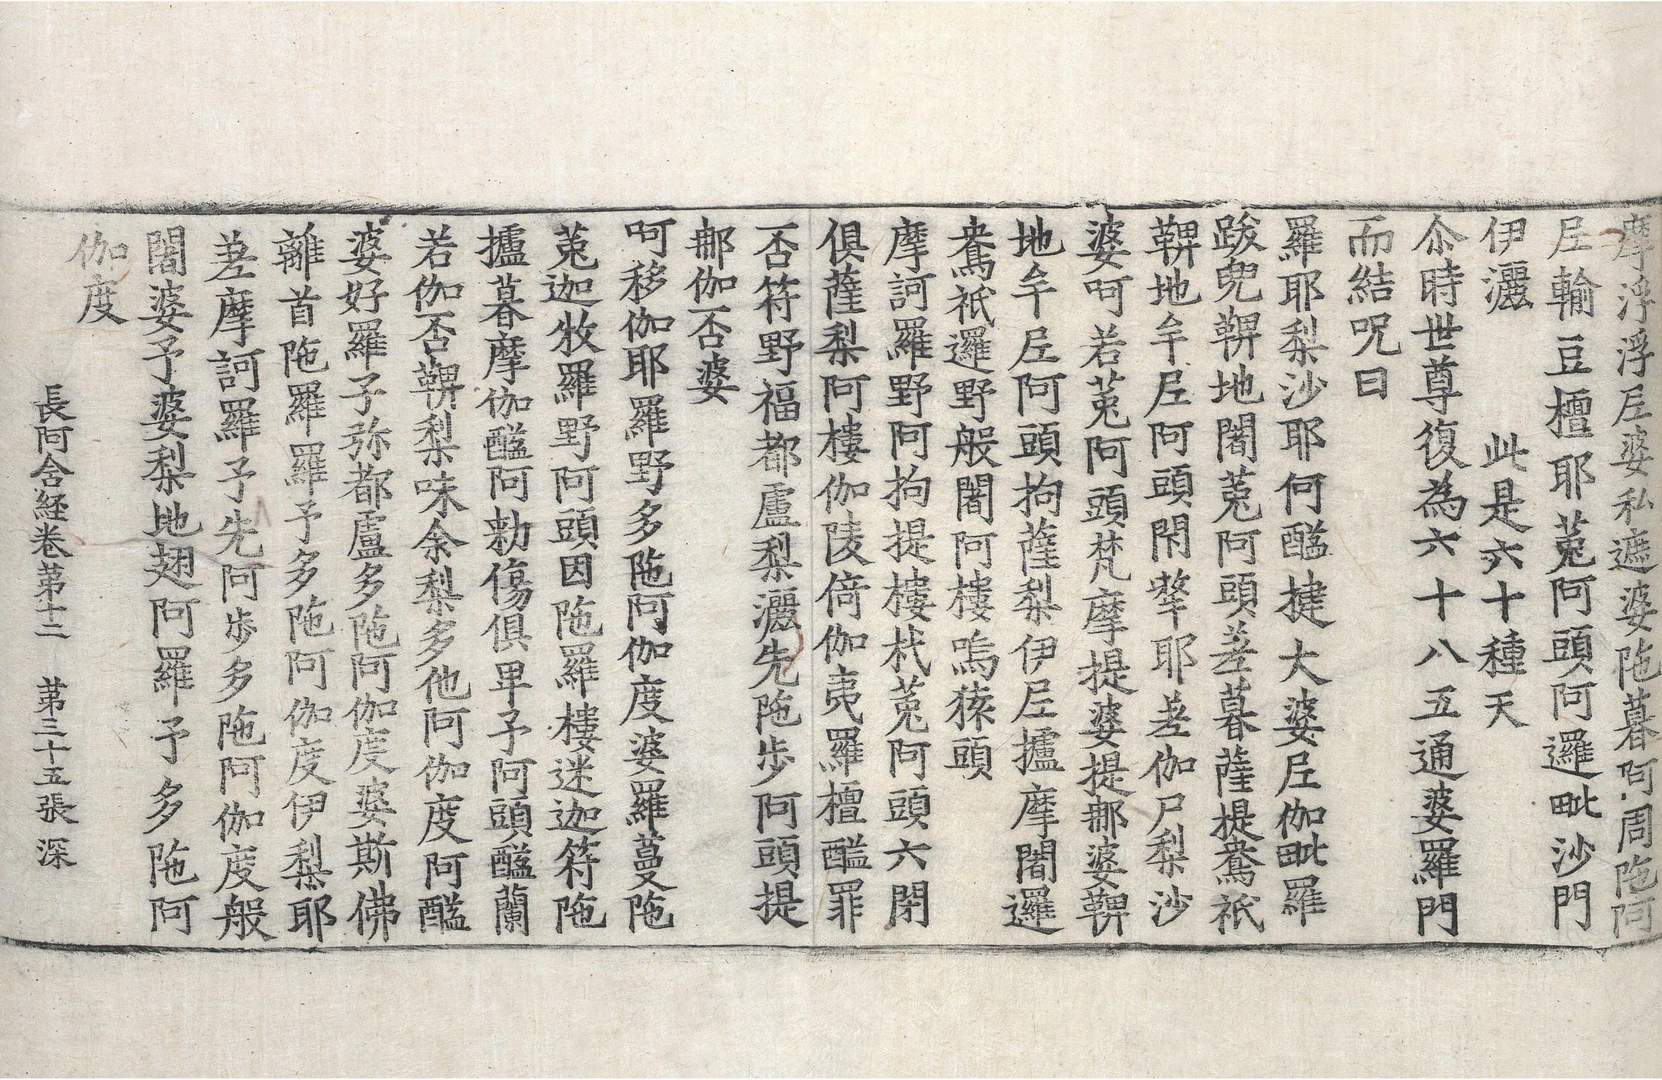 摩浮浮𡰱婆私遮婆陁暮阿周陁阿
𡰱輸豆檀耶菟阿頭阿邏毗沙門
伊灑　此是六十種天
尒時世尊復為六十八五通婆羅門
而結呪曰
羅耶梨沙耶何醯揵大婆𡰱伽毗羅
跋兜鞞地闍菟阿頭差暮薩提鴦祇
鞞地牟𡰱阿頭閇犛耶差伽尸梨沙
婆呵若菟阿頭梵摩提婆提那婆鞞
地牟𡰱阿頭拘薩梨伊𡰱攎摩闍邏
鴦祇邏野般闍阿樓嗚猨頭
摩訶羅野阿拘提樓杙菟阿頭六閉
俱薩梨阿樓伽陵倚伽夷羅檀醯罪
否符野福都盧梨灑先陁步阿頭提
那伽否婆
呵移伽耶羅野多陁阿伽度婆羅蔓陁
菟迦牧羅野阿頭因陁羅樓迷迦符陁
攎暮摩伽醯阿勑傷俱卑予阿頭醯蘭
若伽否鞞梨味余梨多他阿伽度阿醯
婆好羅子弥都盧多陁阿伽度婆斯佛
離首陁羅羅予多陁阿伽度伊梨耶
差摩訶羅予先阿步多陁阿伽度般
闍婆予婆梨地翅阿羅予多陁阿
伽度
長阿含経巻苐十二　苐三十五張　深